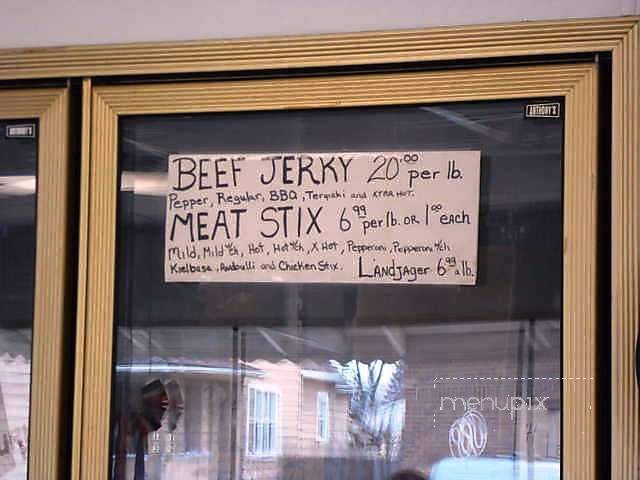 ANTHONY'S
ANTHONY'S
BEEF JERKY 20.00 per lb.
Pepper, Regular, BBQ, Teriyaki and XTRA HOT.
MEAT STIX 6.99 per lb. OR 1.00 EACH
Mild, Mild w/ch, Hot, Hot w/ch, X Hot, Pepperoni, Pepperoni w/ch
Kielbasa, Andoulli and Chicken Stix. Landjager 6.99 a lb.
menupix